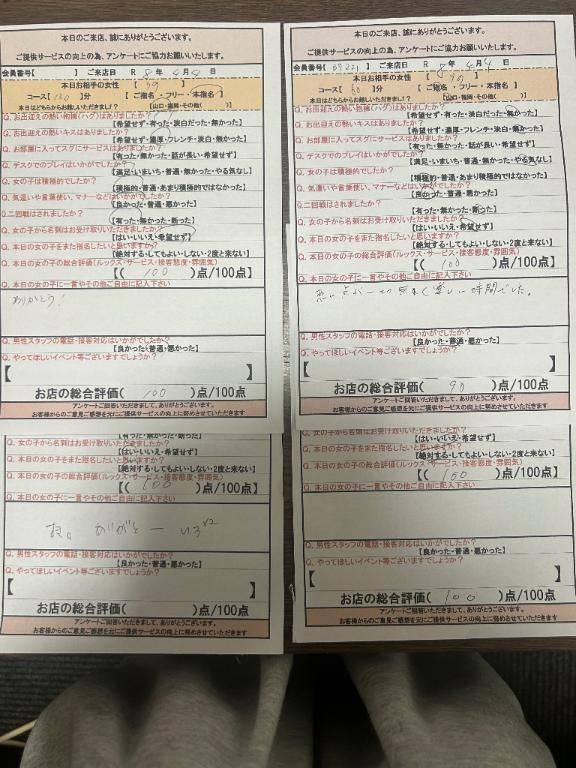 本日のご来店、誠にありがとうございます。
ご提供サービスの向上の為、アンケートにご協力お願いいたします。
会員番号【 】ご来店日 R 8年 4月 4日
本日お相手の女性【 】
コース【 】分 【 ご指名 ・ フリー ・ 本指名 】
本日はどちらからお越しいただきましたか? 【山口・福岡・その他( )】
Q. お出迎えの熱い抱擁(ハグ)はありましたか?
【希望せず・有った・淡白だった・無かった】
Q. お出迎えの熱いキスはありましたか?
【希望せず・濃厚・フレンチ・淡白・無かった】
Q. お部屋に入ってスグにサービスはありましたか?
【有った・無かった・話が長い・希望せず】
Q. デスクでのプレイはいかがでしたか?
【満足・いまいち・普通・無かった・やる気なし】
Q. 女の子は積極的でしたか?
【積極的・普通・あまり積極的ではなかった】
Q. 気遣いや言葉使い、マナーなどはいかがでしたか?
【良かった・普通・悪かった】
Q. 二回戦はされましたか?
【有った・無かった・断った】
Q. 女の子から名刺はお受け取りいただきましたか?
【はい・いいえ・希望せず】
Q. 本日の女の子をまた指名したいと思いますか?
【絶対する・してもよい・しない・2度と来ない】
Q. 本日の女の子の総合評価(ルックス・サービス・接客態度・雰囲気)
【( 100 )点/100点】
Q. 本日の女の子に一言やその他ご自由に記入下さい
ありがとう!
Q. 男性スタッフの電話・接客対応はいかがでしたか?
【良かった・普通・悪かった】
Q. やってほしいイベント等ございますでしょうか?
【 】
お店の総合評価( 100 )点/100点
アンケートご回答いただきまして、ありがとうございます。
お客様からのご意見ご感想を元にご提供サービスの向上に努めさせていただきます
本日のご来店、誠にありがとうございます。
ご提供サービスの向上の為、アンケートにご協力お願いいたします。
会員番号【 】ご来店日 R 8年 4月 4日
本日お相手の女性【 】
コース【 】分 【 ご指名 ・ フリー ・ 本指名 】
本日はどちらからお越しいただきましたか? 【山口・福岡・その他( )】
Q. お出迎えの熱い抱擁(ハグ)はありましたか?
【希望せず・有った・淡白だった・無かった】
Q. お出迎えの熱いキスはありましたか?
【希望せず・濃厚・フレンチ・淡白・無かった】
Q. お部屋に入ってスグにサービスはありましたか?
【有った・無かった・話が長い・希望せず】
Q. デスクでのプレイはいかがでしたか?
【満足・いまいち・普通・無かった・やる気なし】
Q. 女の子は積極的でしたか?
【積極的・普通・あまり積極的ではなかった】
Q. 気遣いや言葉使い、マナーなどはいかがでしたか?
【良かった・普通・悪かった】
Q. 二回戦はされましたか?
【有った・無かった・断った】
Q. 女の子から名刺はお受け取りいただきましたか?
【はい・いいえ・希望せず】
Q. 本日の女の子をまた指名したいと思いますか?
【絶対する・してもよい・しない・2度と来ない】
Q. 本日の女の子の総合評価(ルックス・サービス・接客態度・雰囲気)
【( 100 )点/100点】
Q. 本日の女の子に一言やその他ご自由に記入下さい
悪い点が一切無く楽しい時間でした。
Q. 男性スタッフの電話・接客対応はいかがでしたか?
【良かった・普通・悪かった】
Q. やってほしいイベント等ございますでしょうか?
【 】
お店の総合評価( 90 )点/100点
アンケートご回答いただきまして、ありがとうございます。
お客様からのご意見ご感想を元にご提供サービスの向上に努めさせていただきます
【有った・無かった・断った】
Q. 女の子から名刺はお受け取りいただきましたか?
【はい・いいえ・希望せず】
Q. 本日の女の子をまた指名したいと思いますか?
【絶対する・してもよい・しない・2度と来ない】
Q. 本日の女の子の総合評価(ルックス・サービス・接客態度・雰囲気)
【( 100 )点/100点】
Q. 本日の女の子に一言やその他ご自由に記入下さい
ありがと
Q. 男性スタッフの電話・接客対応はいかがでしたか?
【良かった・普通・悪かった】
Q. やってほしいイベント等ございますでしょうか?
【 】
お店の総合評価( )点/100点
アンケートご回答いただきまして、ありがとうございます。
お客様からのご意見ご感想を元にご提供サービスの向上に努めさせていただきます
Q. 女の子から名刺はお受け取りいただきましたか?
【はい・いいえ・希望せず】
Q. 本日の女の子をまた指名したいと思いますか?
【絶対する・してもよい・しない・2度と来ない】
Q. 本日の女の子の総合評価(ルックス・サービス・接客態度・雰囲気)
【( 100 )点/100点】
Q. 本日の女の子に一言やその他ご自由に記入下さい
Q. 男性スタッフの電話・接客対応はいかがでしたか?
【良かった・普通・悪かった】
Q. やってほしいイベント等ございますでしょうか?
【 】
お店の総合評価( 100 )点/100点
アンケートご回答いただきまして、ありがとうございます。
お客様からのご意見ご感想を元にご提供サービスの向上に努めさせていただきます